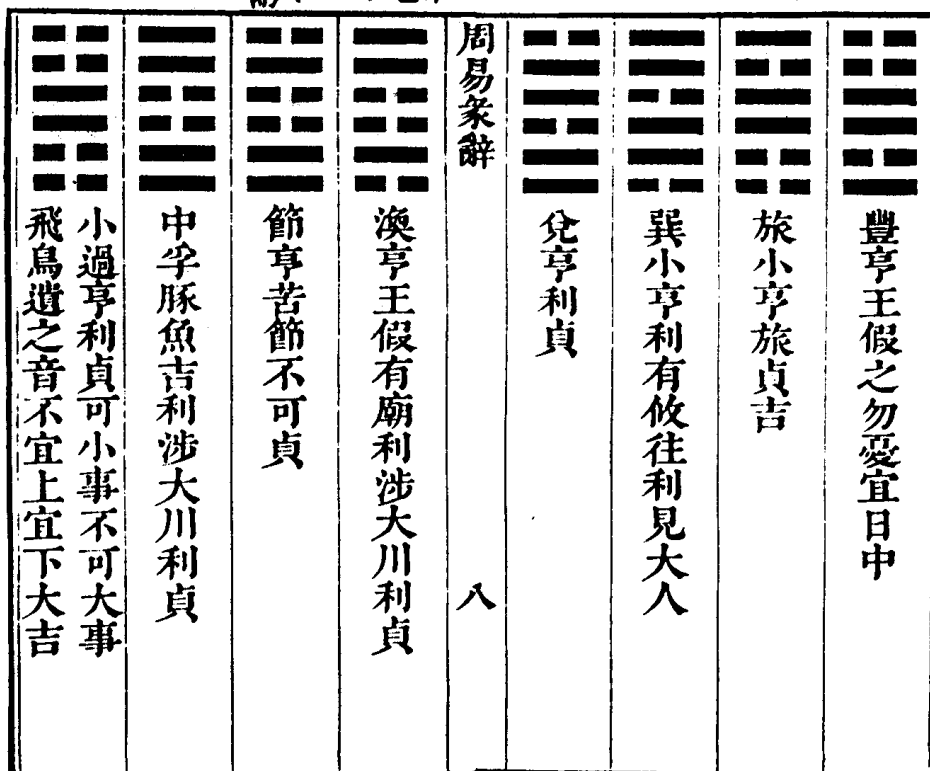 豐亨王假之勿憂宜日中
旅小亨旅貞吉
巽小亨利有攸往利見大人
兌亨利貞
周易彖辭
八
渙亨王假有廟利涉大川利貞
節亨苦節不可貞
中孚豚魚吉利涉大川利貞
小過亨利貞可小事不可大事
飛鳥遺之音不宜上宜下大吉